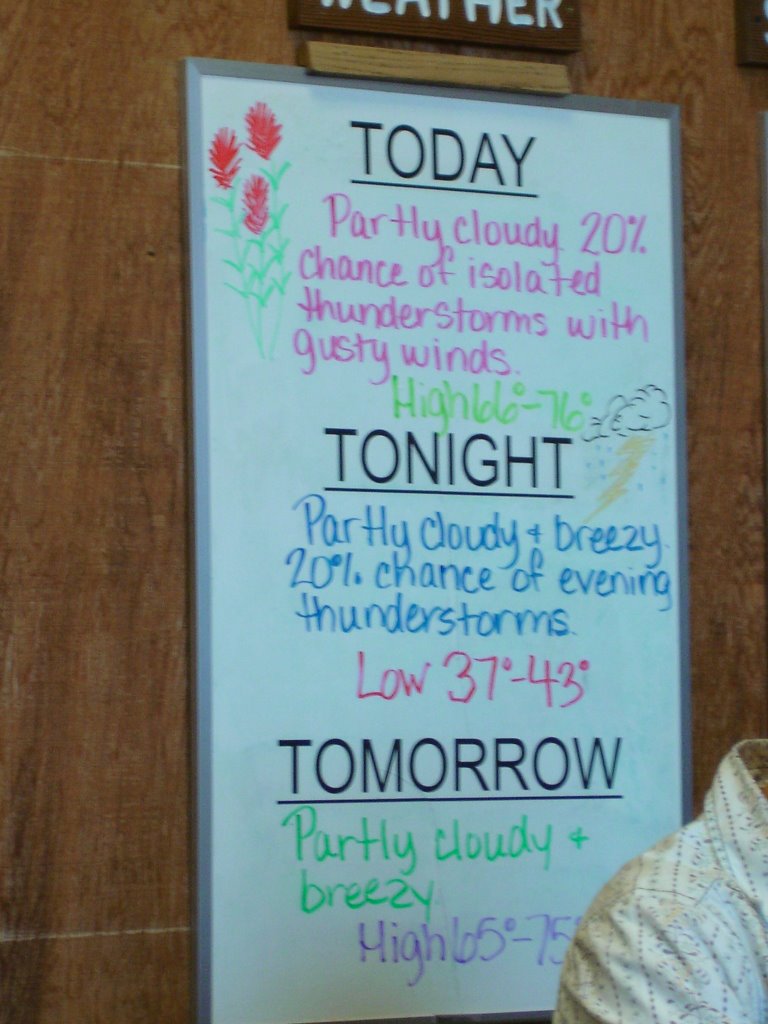 WEATHER
TODAY
Partly cloudy. 20%
chance of isolated
thunderstorms with
gusty winds.
High 66°-76°
TONIGHT
Partly cloudy + breezy.
20% chance of evening
thunderstorms.
Low 37°-43°
TOMORROW
Partly cloudy +
breezy.
High 65°-75°